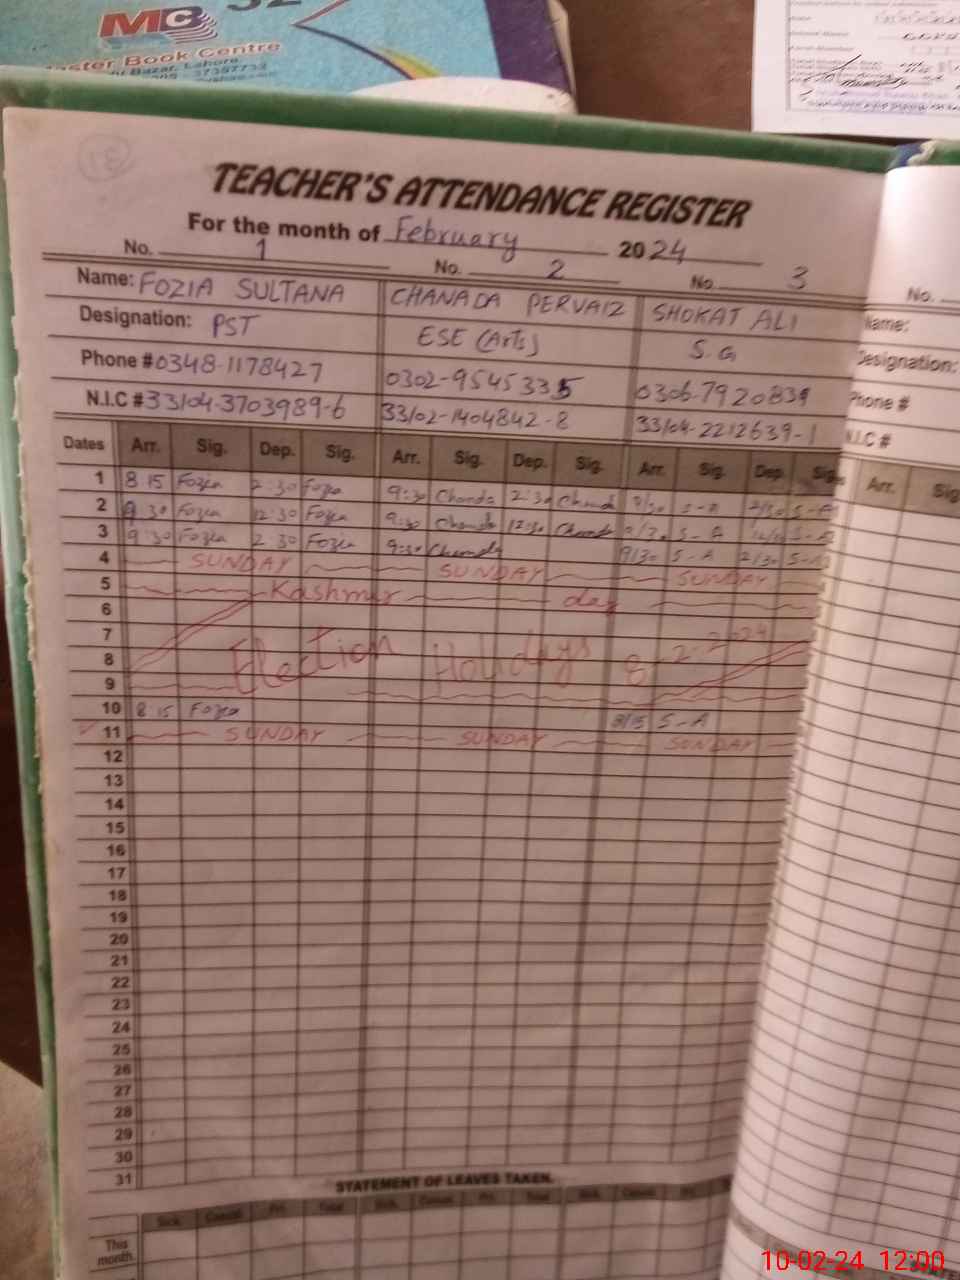 MC
Master Book Centre
Bazar, Lahore.
37357732
TEACHER'S ATTENDANCE REGISTER
For the month of February 2024
No. 1 No. 2 No. 3 No.
Name: FOZIA SULTANA CHANADA PERVAIZ SHOKAT ALI Name:
Designation: PST ESE (Arts) S.G Designation:
Phone # 0348-1178427 0302-9545335 0306-7920839 Phone #
N.I.C # 33104-3703989-6 33102-1404842-8 33104-2212639-1 N.I.C #
Dates Arr. Sig. Dep. Sig. Arr. Sig. Dep. Sig. Arr. Sig. Dep. Sig. Arr. Sig
1 8 15 Fozia 2:30 Fozia 9:30 Chanda 2:30 Chanda S-A S-A
2 9 30 Fozia 12:30 Fozia 9:30 Chanda 12:30 Chanda S-A S-A
3 9:30 Fozia 2 30 Fozia 9:30 Chanda 9/30 S-A 2/30 S-A
4 SUNDAY SUNDAY SUNDAY
5 Kashmir day
6
7
8 Election Holidays 8-2-2024
9
10 8 15 Fozia 8/15 S-A
11 SUNDAY SUNDAY SUNDAY
12
13
14
15
16
17
18
19
20
21
22
23
24
25
26
27
28
29
30
31
STATEMENT OF LEAVES TAKEN.
Sick. Casual. Pri. Total Sick. Casual. Pri. Total Sick. Casual. Pri.
This month.
10-02-24 12:00